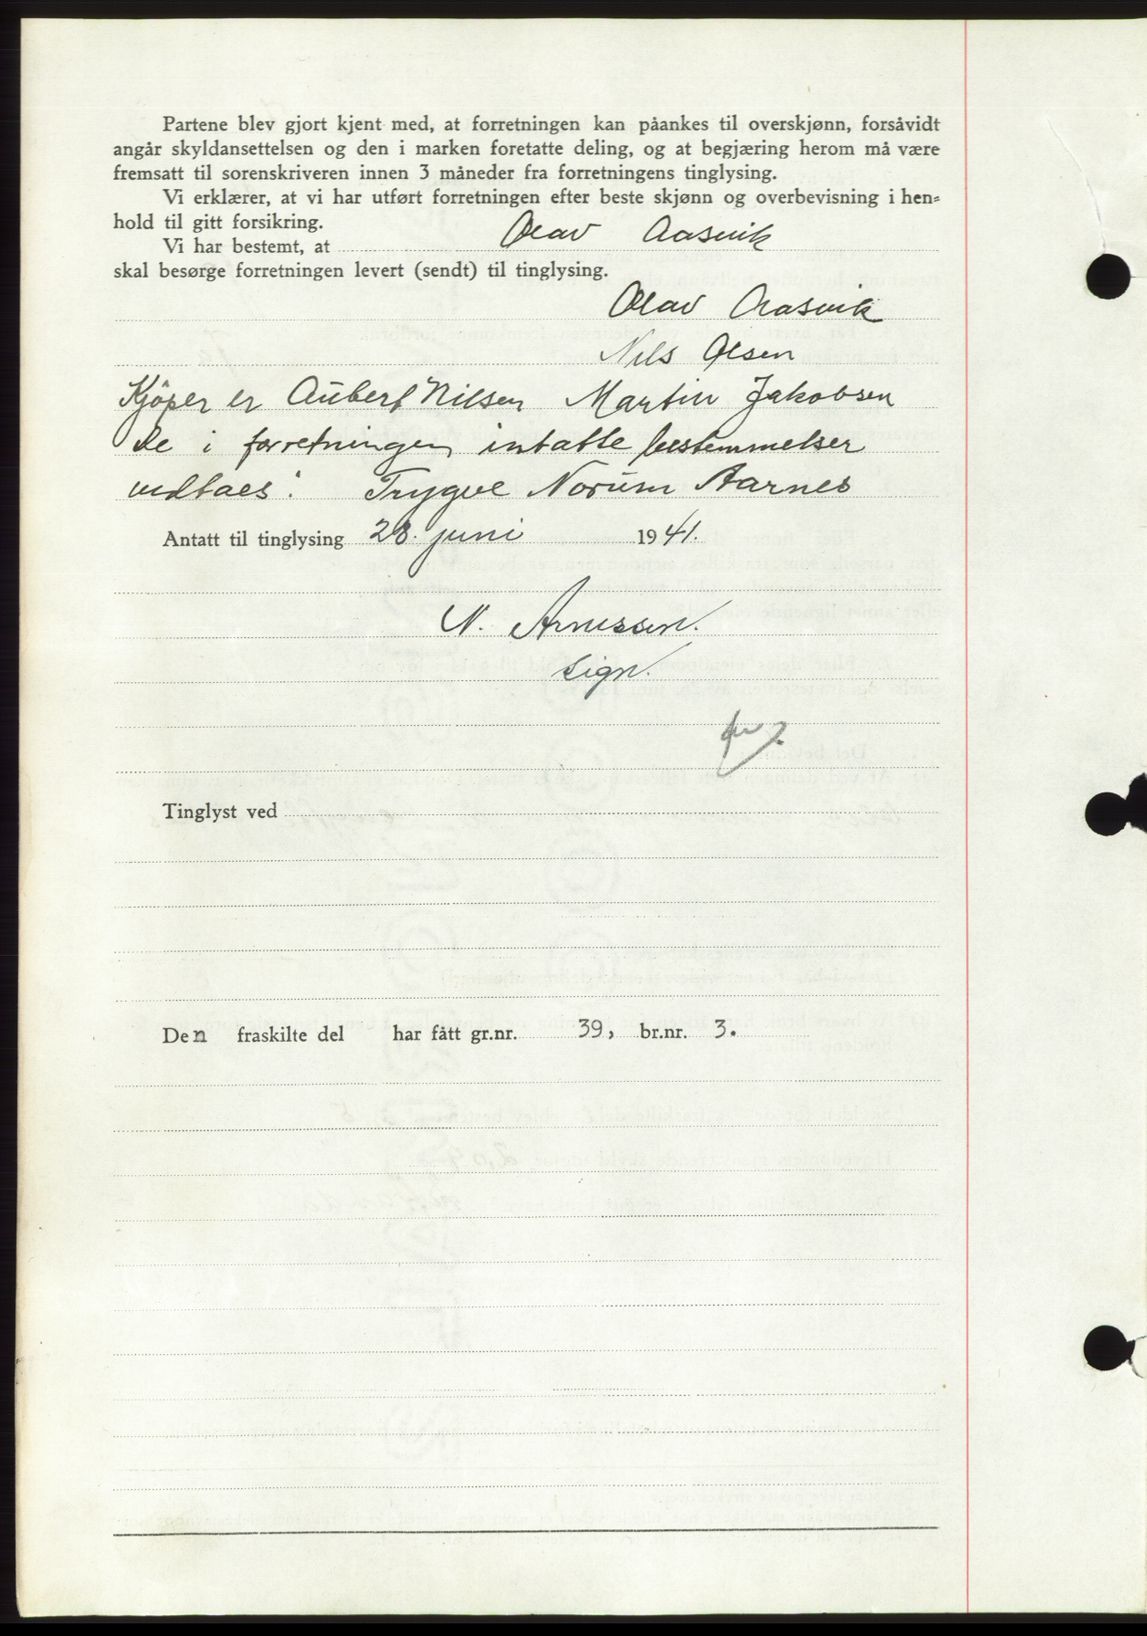 Partene blev gjort kjent med, at forretningen kan påankes til overskjønn, forsåvidt
angår skyldansettelsen og den i marken foretatte deling, og at begjæring herom må være
fremsatt til sorenskriveren innen 3 måneder fra forretningens tinglysing.
Vi erklærer, at vi har utført forretningen efter beste skjønn og overbevisning i hen=
hold til gitt forsikring.
Vi har bestemt, at Olav Aasvik
skal besørge forretningen levert (sendt) til tinglysing.
Olav Aasvik
Nils Olsen
Kjöper er Aubert Nilsen Martin Jakobsen
de i forretningen intatte bestemmelser
vedtaes: Trygve Norum Aarnes
Antatt til tinglysing 28. juni 1941.
N. Arnessen.
sign.
Tinglyst ved
Den fraskilte del har fått gr.nr. 39, br.nr. 3.